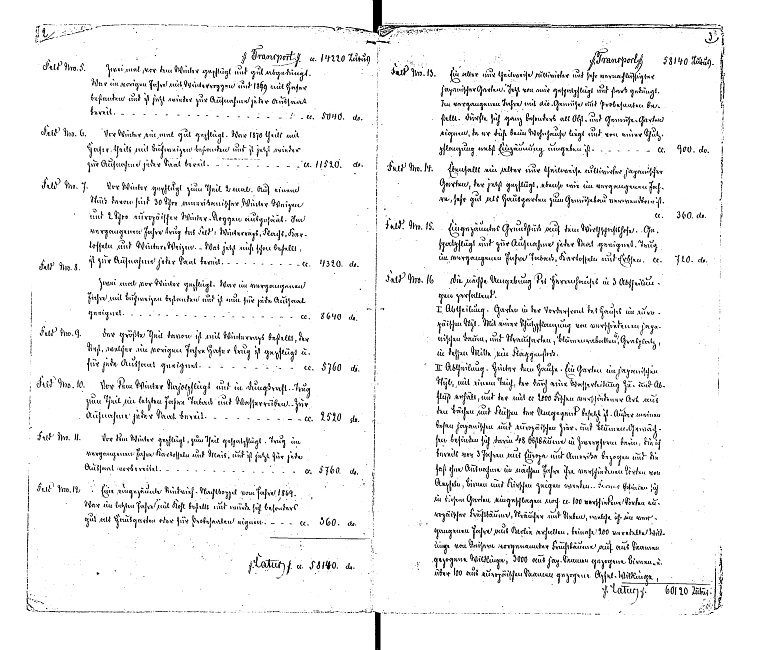 2.
Transport c. 14220 Tsubu
Feld No. 5. Zwei mal vor dem Winter gepflügt und gut abgedüngt.
War im vorigen Jahre mit Winterroggen und 1869 mit Hafer
bestanden und ist jetzt wieder zur Aufnahme jeder Aussaat
bereit. c. 5040. do.
Feld No. 6. Vor Winter ein mal gut gepflügt. War 1870 theils mit
Hafer theils mit Buchweizen bestanden und ist jetzt wieder
zur Aufnahme jeder Saat bereit. c. 11520. do.
Feld No. 7. Vor Winter gepflügt zum Theil 2 mal. Auf einem
Stück davon sind 30 Tsho amerikanischer Winter Weizen
und 2 Tsho europäischer Winter-Roggen ausgesäet. Im
vergangenen Jahre trug das Feld: Winterraps, Flachs, Kar-
toffeln und Winter Weizen. Was jetzt nicht schon bestellt,
ist zur Aufnahme jeder Saat bereit. c. 4320. do.
Feld No. 8.
Zwei mal vor Winter gepflügt. War im vergangenen
Jahre mit Buchweizen bestanden und ist nun für jede Aussaat
geeignet. c. 8640 do.
Feld No. 9. Der größte Theil davon ist mit Winterraps bestellt, der
Rest, welcher im vorigen Jahre Hafer trug ist gepflügt u.
für jede Aussaat geeignet. c. 5760 do.
Feld No. 10. Vor dem Winter und in Trug
zum Theil im letzten Jahre Tabak und Wasserrüben. Zur
Aufnahme jeder Saat bereit. c. 2520 do.
Feld No. 11. Vor dem Winter gepflügt, zum Theil Trug im
vergangenen Jahre Kartoffeln und Mais, und ist jetzt für jede
Aussaat vorbereitet. c. 5760. do.
Feld No. 12. Eine eingezäunte vom Jahre 1869.
War im letzten Jahre mit bestellt und würde sich besonders
gut als Hausgarten oder für Probesaaten eignen. c. 360. do.
Latus c. 58140. do.
3.
Transport 58140 Tsubu.
Feld No. 13. Ein alter nur theilweise cultivirter und sehr vernachlässigter
japanischer Garten. Jetzt neu und stark gedüngt.
Im vergangenen Jahre mit Gemüse und Probesaaten be-
stellt. Dürfte sich ganz besonders als Obst- und Gemüse-Garten
eignen, da er dicht beim Wohnhause liegt und von einer Schutz-
pflanzung nebst Einzäunung umgeben ist. c. 900. do.
Feld No. 14. Ebenfalls ein alter nur theilweise cultivirter japanischer
Garten, der jetzt gepflügt, ebenso wie im vergangenen Jah-
re, sehr gut als Hausgarten zum Gemüsebau verwendbar ist.
c. 360. do.
Feld No. 15. Eingezäuntes Grundstück auf dem Wirthschaftshofe. Ge-
und zur Aufnahme jeder Saat geeignet. Trug
im vergangenen Jahre Tabak, Kartoffeln und Erbsen. c. 720. do.
Feld No. 16 Die nächste Umgebung des Herrenhauses in 3 Abtheilun-
gen zerfallend.
I Abtheilung. Garten in der Vorderfront des Hauses im euro-
päischen Styl. Mit einer Schutzpflanzung von verschiedenen japa-
nischen Bäum- und Straucharten, Blumenrabatten, Grasplatz,
in dessen Mitte ein Flaggenstock.
II Abtheilung. Hinter dem Hause. Ein Garten im japanischen
Styl, mit einem Teich, der durch eine Wasserleitung Zu- und Ab-
fluß erhält, und der mit c. 2000 Fischen verschiedener Art aus
den Bächen und Flüssen der Umgegend besetzt ist. Außer
japanischen und europäischen Zier- und Blumen-Gewäch-
sen befinden sich darin 48 Obstbäume in Zwergform, die ich
bereits vor 3 Jahren aus Europa und Amerika bezogen und die
fast ohne Ausnahme im nächsten Jahre ihre verschiedenen Sorten von
Aepfeln, Birnen und Kirschen zeigen werden. Ferner befinden sich
in diesem Garten eingeschlagen noch c. 100 verschiedene Sorten eu-
ropäischer Fruchtbäume, Sträucher und Reben, welche ich im ver-
gangenen Jahre aus Berlin erhalten, beinahe 200 veredelte Wild-
linge von Reisern vorgenannter Fruchtbäume, auch aus Samen
gezogene Wildlinge, 3000 aus jap. Samen gezogene Birnen- u.
über 100 aus europäischen Samen gezogene Apfel-Wildlinge.
Latus 60120 Tsubu.